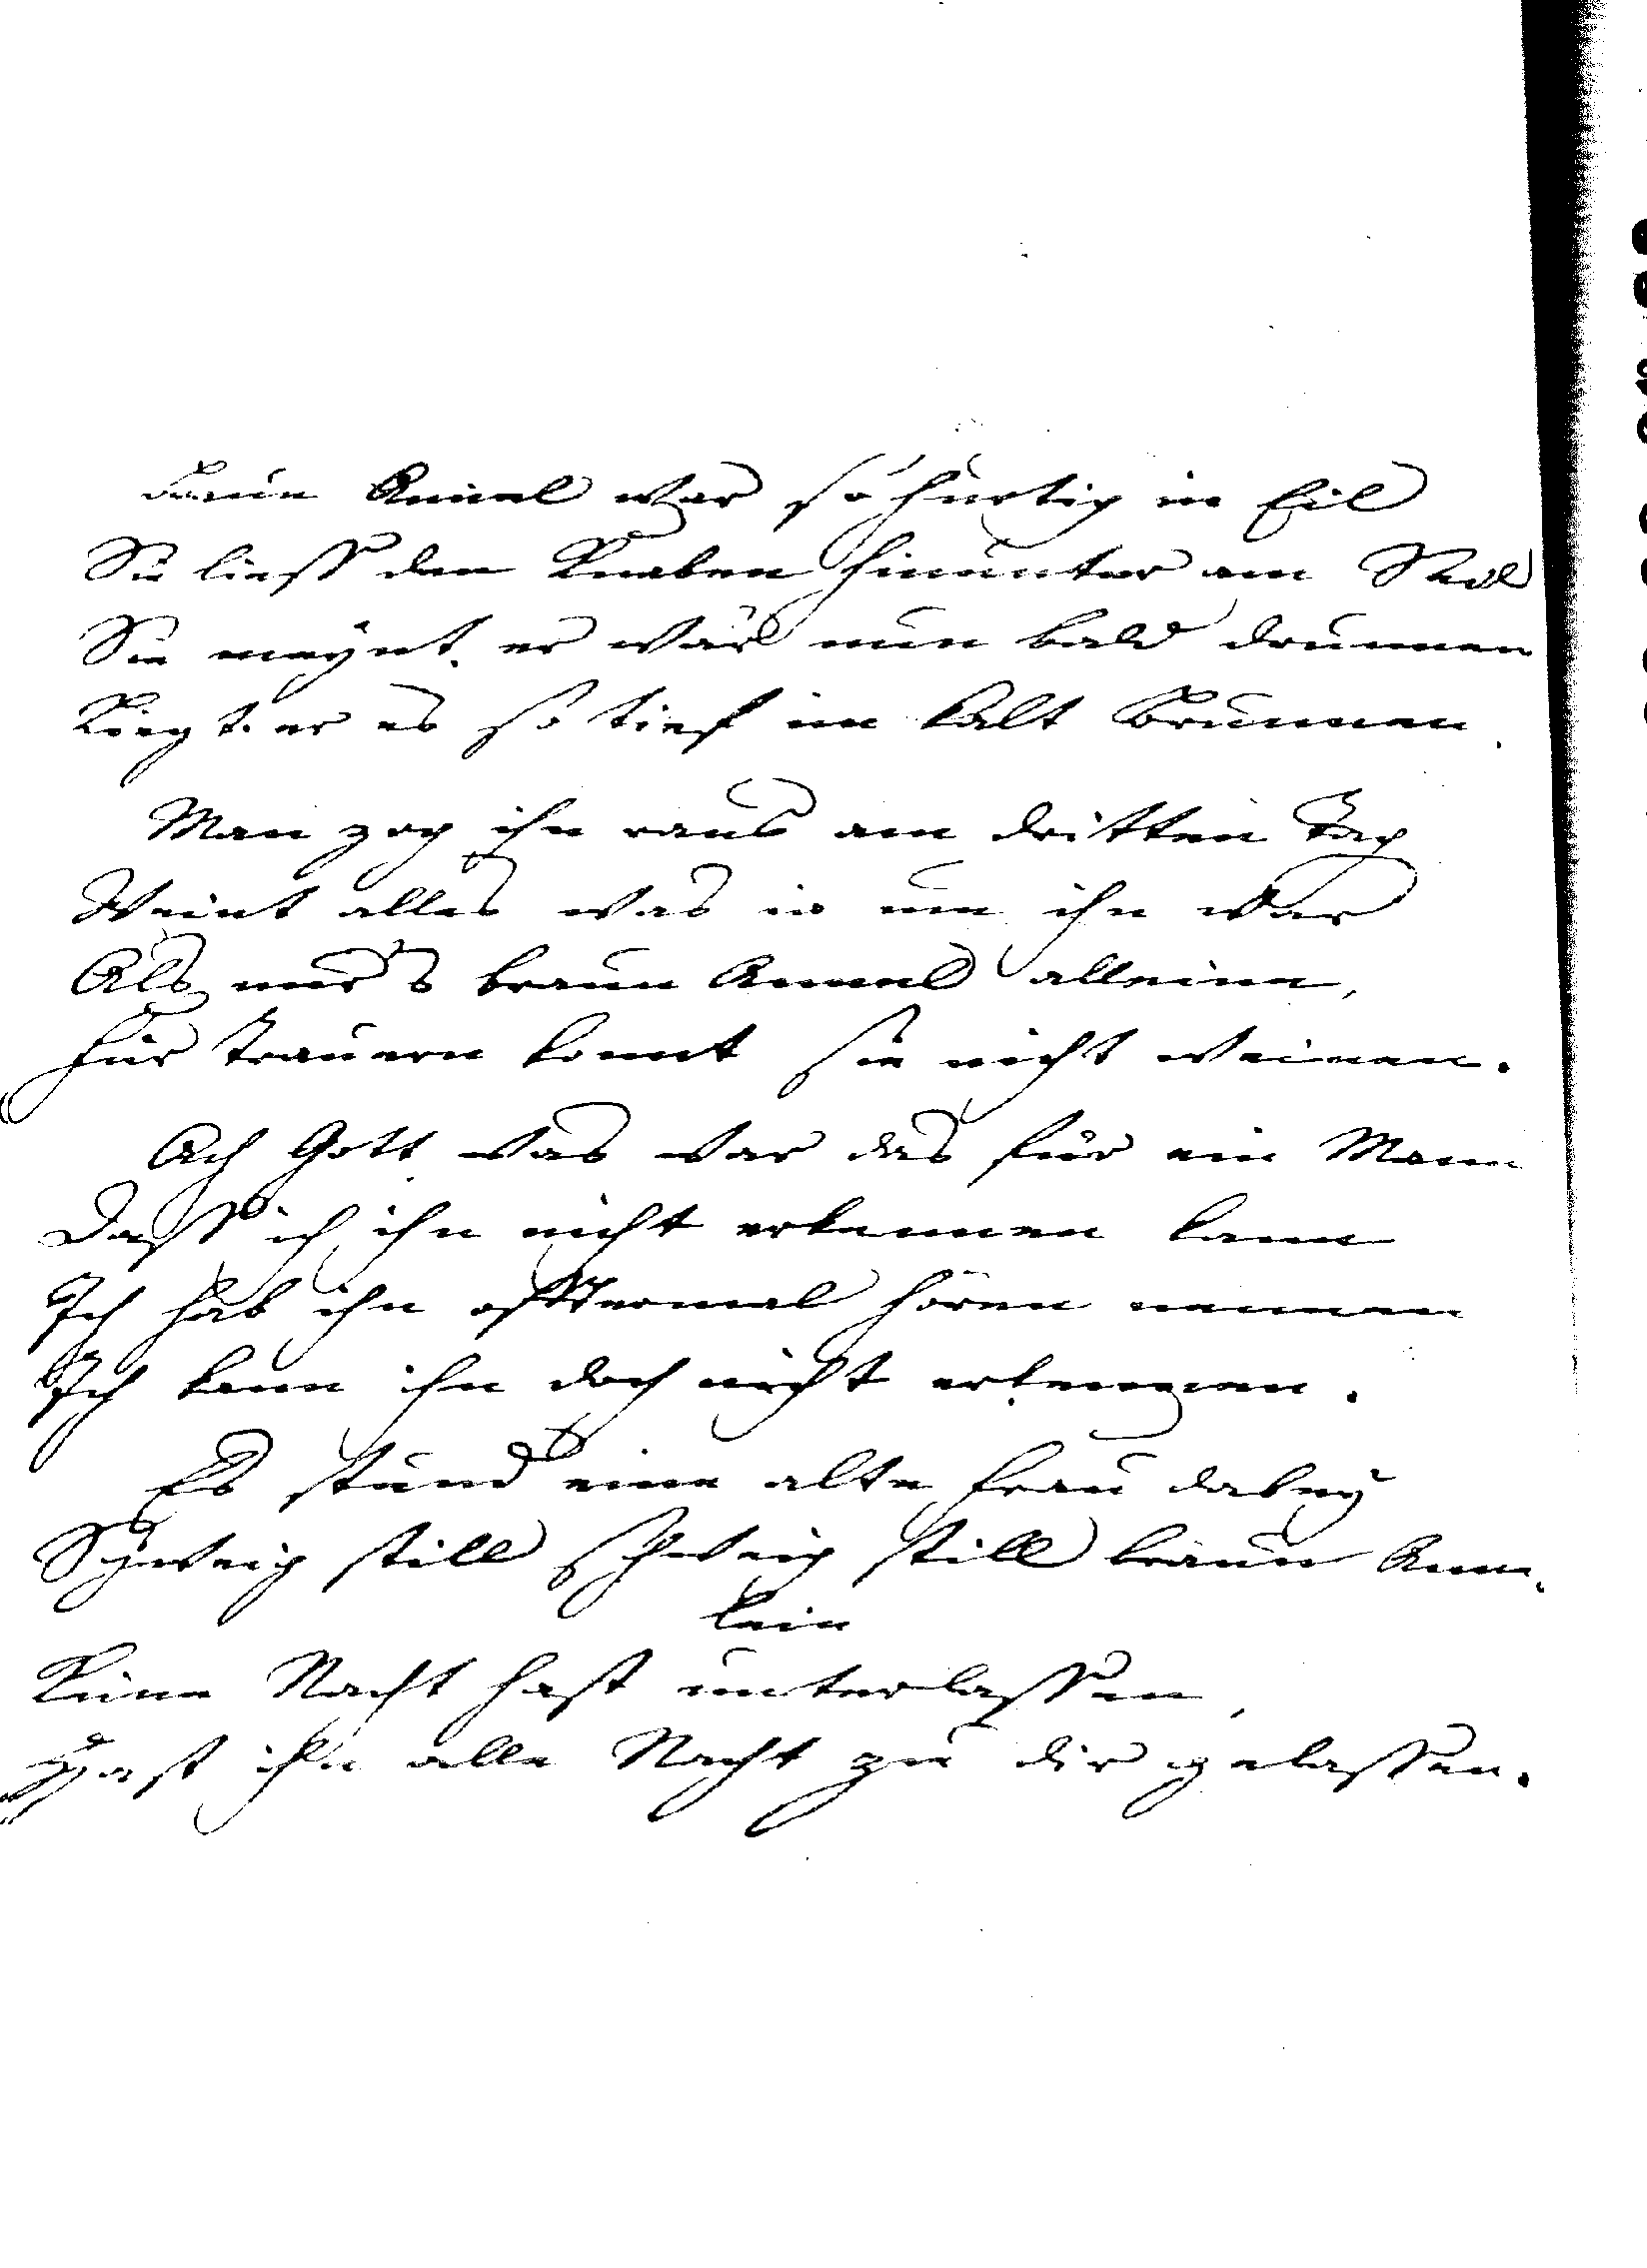 Braun Annel war so hurtig in Eil
Sie liess den Knaben hinunter am Seil
Sie meynt er wär nun bald drunnen
Liegt er es so tief im kalt Brunnen.
Man zog ihn raus am dritten Tag
Weint alles was in um ihn war
Als nur's braun Annel alleine,
Für Trauern konnt sie nicht weinen.
Ach Gott was war das für ein Mann
Dass ich ihn nicht erkennen kann
Ich hab ihn offtermal hören nennen
Ich kann ihn doch nicht erkennen.
Es stund eine alte Frau dabey
Schweig still schweig still braun Ann,
lein
Keine Nacht hast unterlassen,
Hast ihn alle Nacht zu dir gelassen.